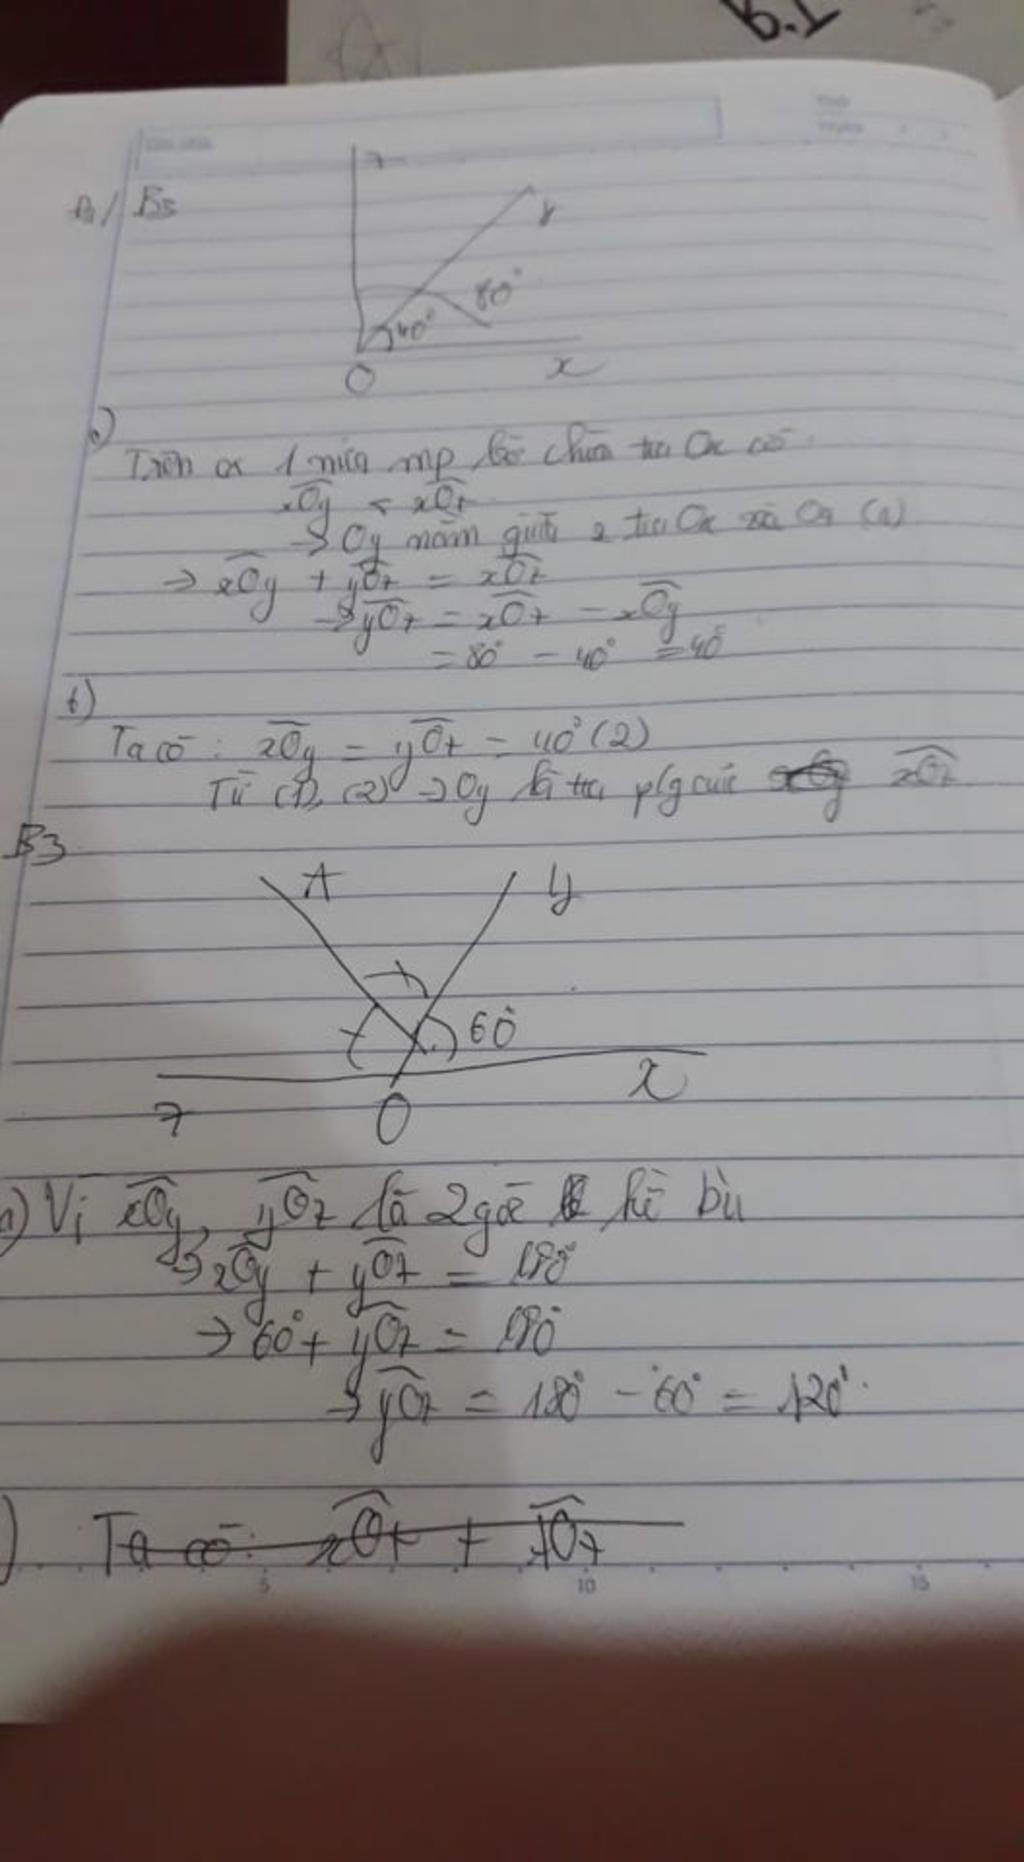 B.1
B5
z
y
80°
40°
O
x
a)
Trên cx 1 nửa mp bờ chứa tia Ox có
xOy < xOz
→ Oy nằm giữa 2 tia Ox và Oz (1)
→ xOy + yOz = xOz
→ yOz = xOz - xOy
= 80° - 40° = 40°
b)
Ta có: xOy = yOz = 40° (2)
Từ (1), (2) → Oy là tia p/g của xOz
B3
t
y
60°
x
z
O
a) Vì xOy, yOz là 2 góc kề bù
→ xOy + yOz = 180°
→ 60° + yOz = 180°
→ yOz = 180° - 60° = 120°
) Ta có: xOt + tOz
5 10 15